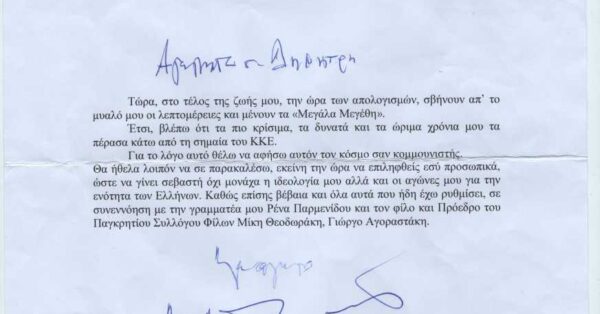 Αγαπητέ Δημήτρη
Τώρα, στο τέλος της ζωής μου, την ώρα των απολογισμών, σβήνουν απ’ το
μυαλό μου οι λεπτομέρειες και μένουν τα «Μεγάλα Μεγέθη».
Έτσι, βλέπω ότι τα πιο κρίσιμα, τα δυνατά και τα ώριμα χρόνια μου τα
πέρασα κάτω από τη σημαία του ΚΚΕ.
Για το λόγο αυτό θέλω να αφήσω αυτόν τον κόσμο σαν κομμουνιστής.
Θα ήθελα λοιπόν να σε παρακαλέσω, εκείνη την ώρα να επιληφθείς εσύ προσωπικά,
ώστε να γίνει σεβαστή όχι μονάχα η ιδεολογία μου αλλά και οι αγώνες μου για την
ενότητα των Ελλήνων. Καθώς επίσης βέβαια και όλα αυτά που ήδη έχω ρυθμίσει, σε
συνεννόηση με την γραμματέα μου Ρένα Παρμενίδου και τον φίλο και Πρόεδρο του
Παγκρητίου Συλλόγου Φίλων Μίκη Θεοδωράκη, Γιώργο Αγοραστάκη.